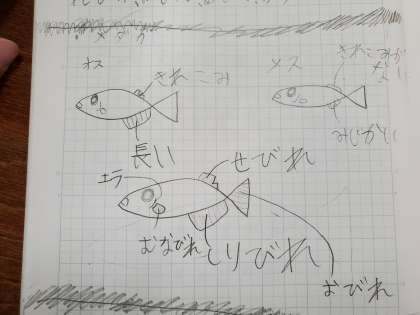 ・メダカ
オス
きれこみ
長い
メス
きれこみが
ない
みじかい
エラ
せびれ
むなびれ
しりびれ
おびれ